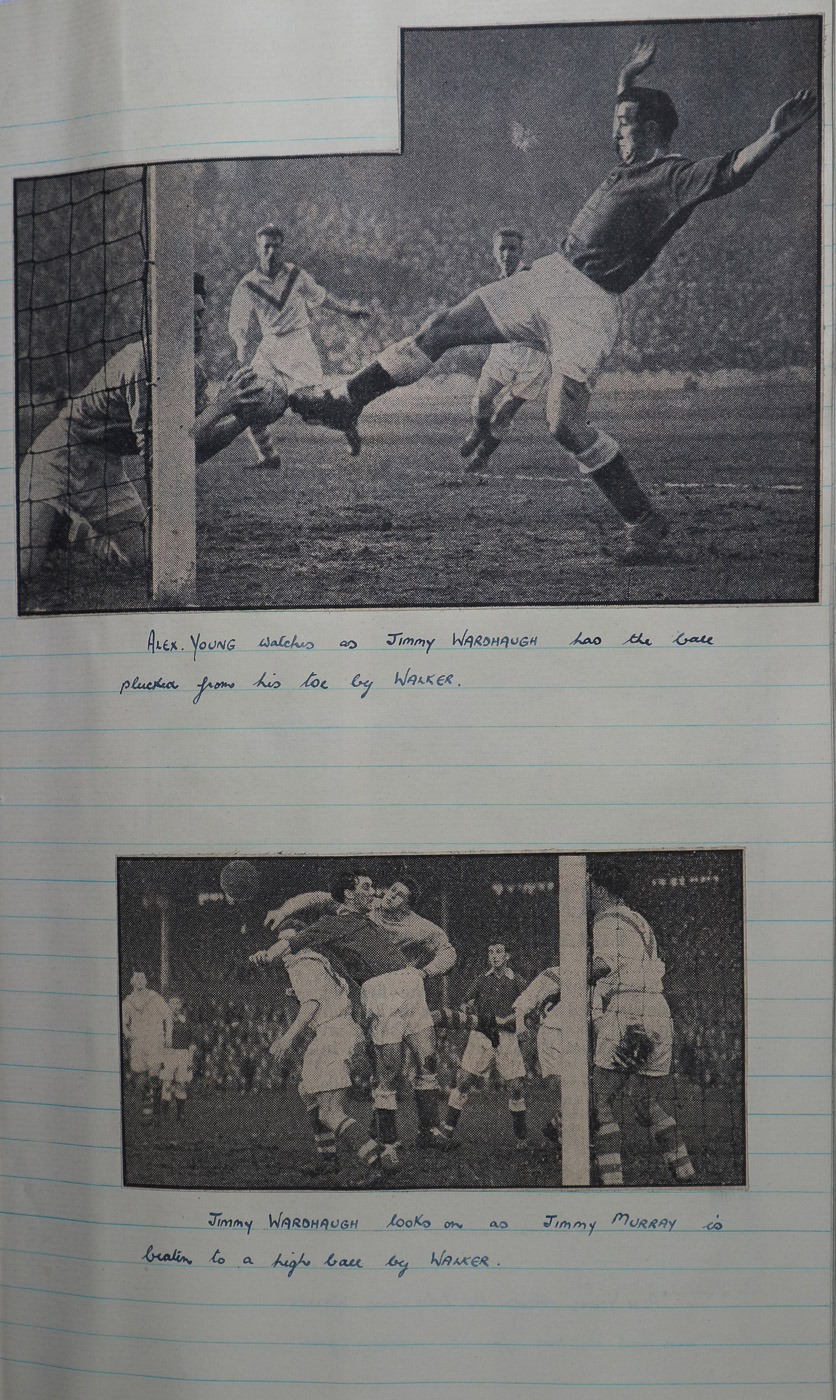 ALEX. YOUNG watches as Jimmy WARDHAUGH has the ball
plucked from his toe by WALKER.
Jimmy WARDHAUGH looks on as Jimmy MURRAY is
beaten to a high ball by WALKER.